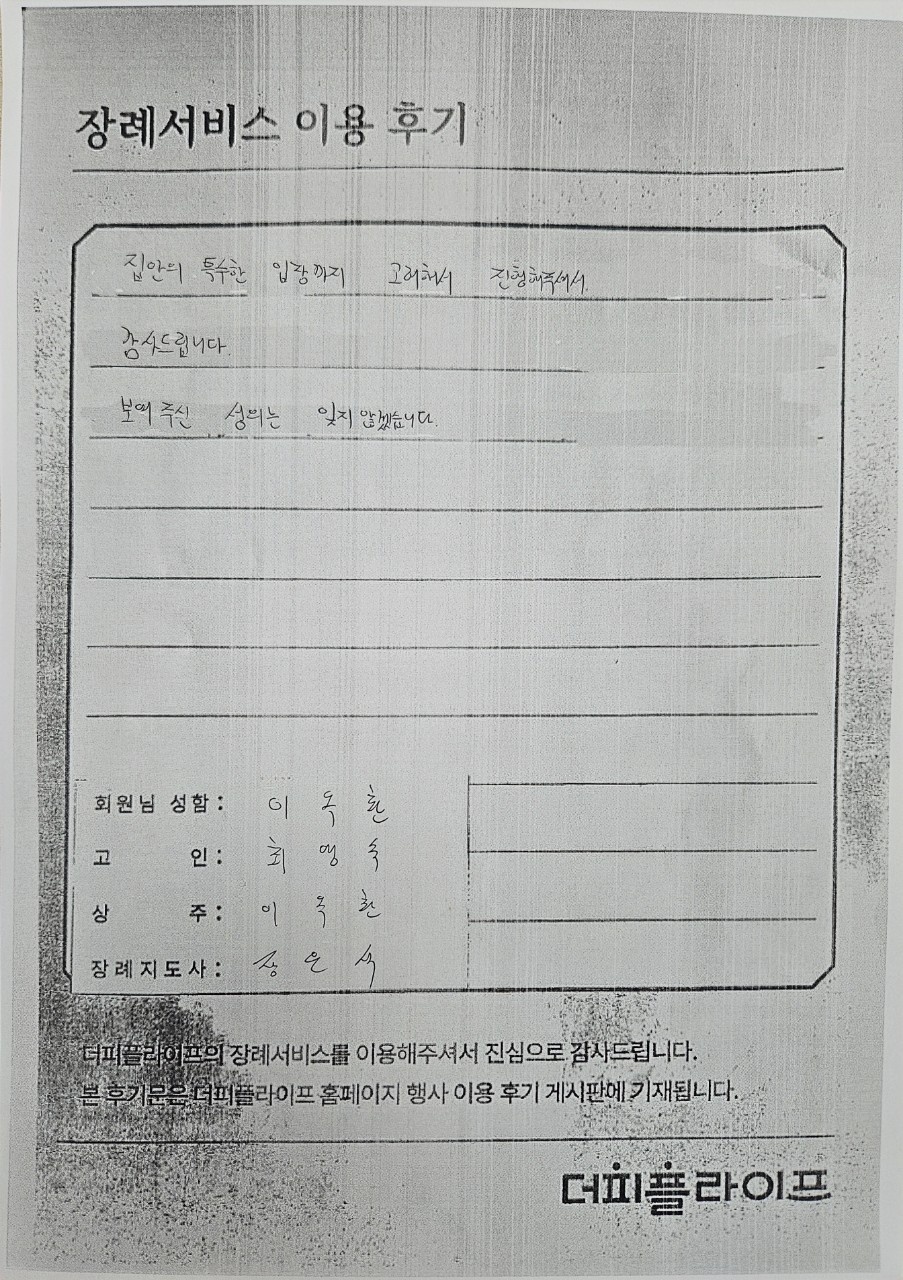 장례서비스 이용 후기
집안의 특수한 입장까지 고려해서 진행해주셔서
감사드립니다.
보여주신 성의는 잊지 않겠습니다.
회원님 성함 : 이 독 환
고 인 : 최 영 숙
상 주 : 이 독 환
장례지도사 : 은 석
더피플라이프의 장례서비스를 이용해주셔서 진심으로 감사드립니다.
본 후기문은 더피플라이프 홈페이지 행사 이용 후기 게시판에 기재됩니다.
더피플라이프